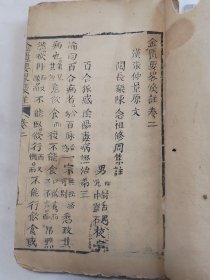 金匱要略淺註卷二
漢張仲景原文
閩長樂陳念祖修園集註
男
元犀靈石
校字
百合狐惑陰陽毒病證治第三
論曰百合病者百脈一宗悉致其
病也意欲食復不能食常默
欲臥不能臥欲行不能行飲食或
金匱要略淺註
卷二